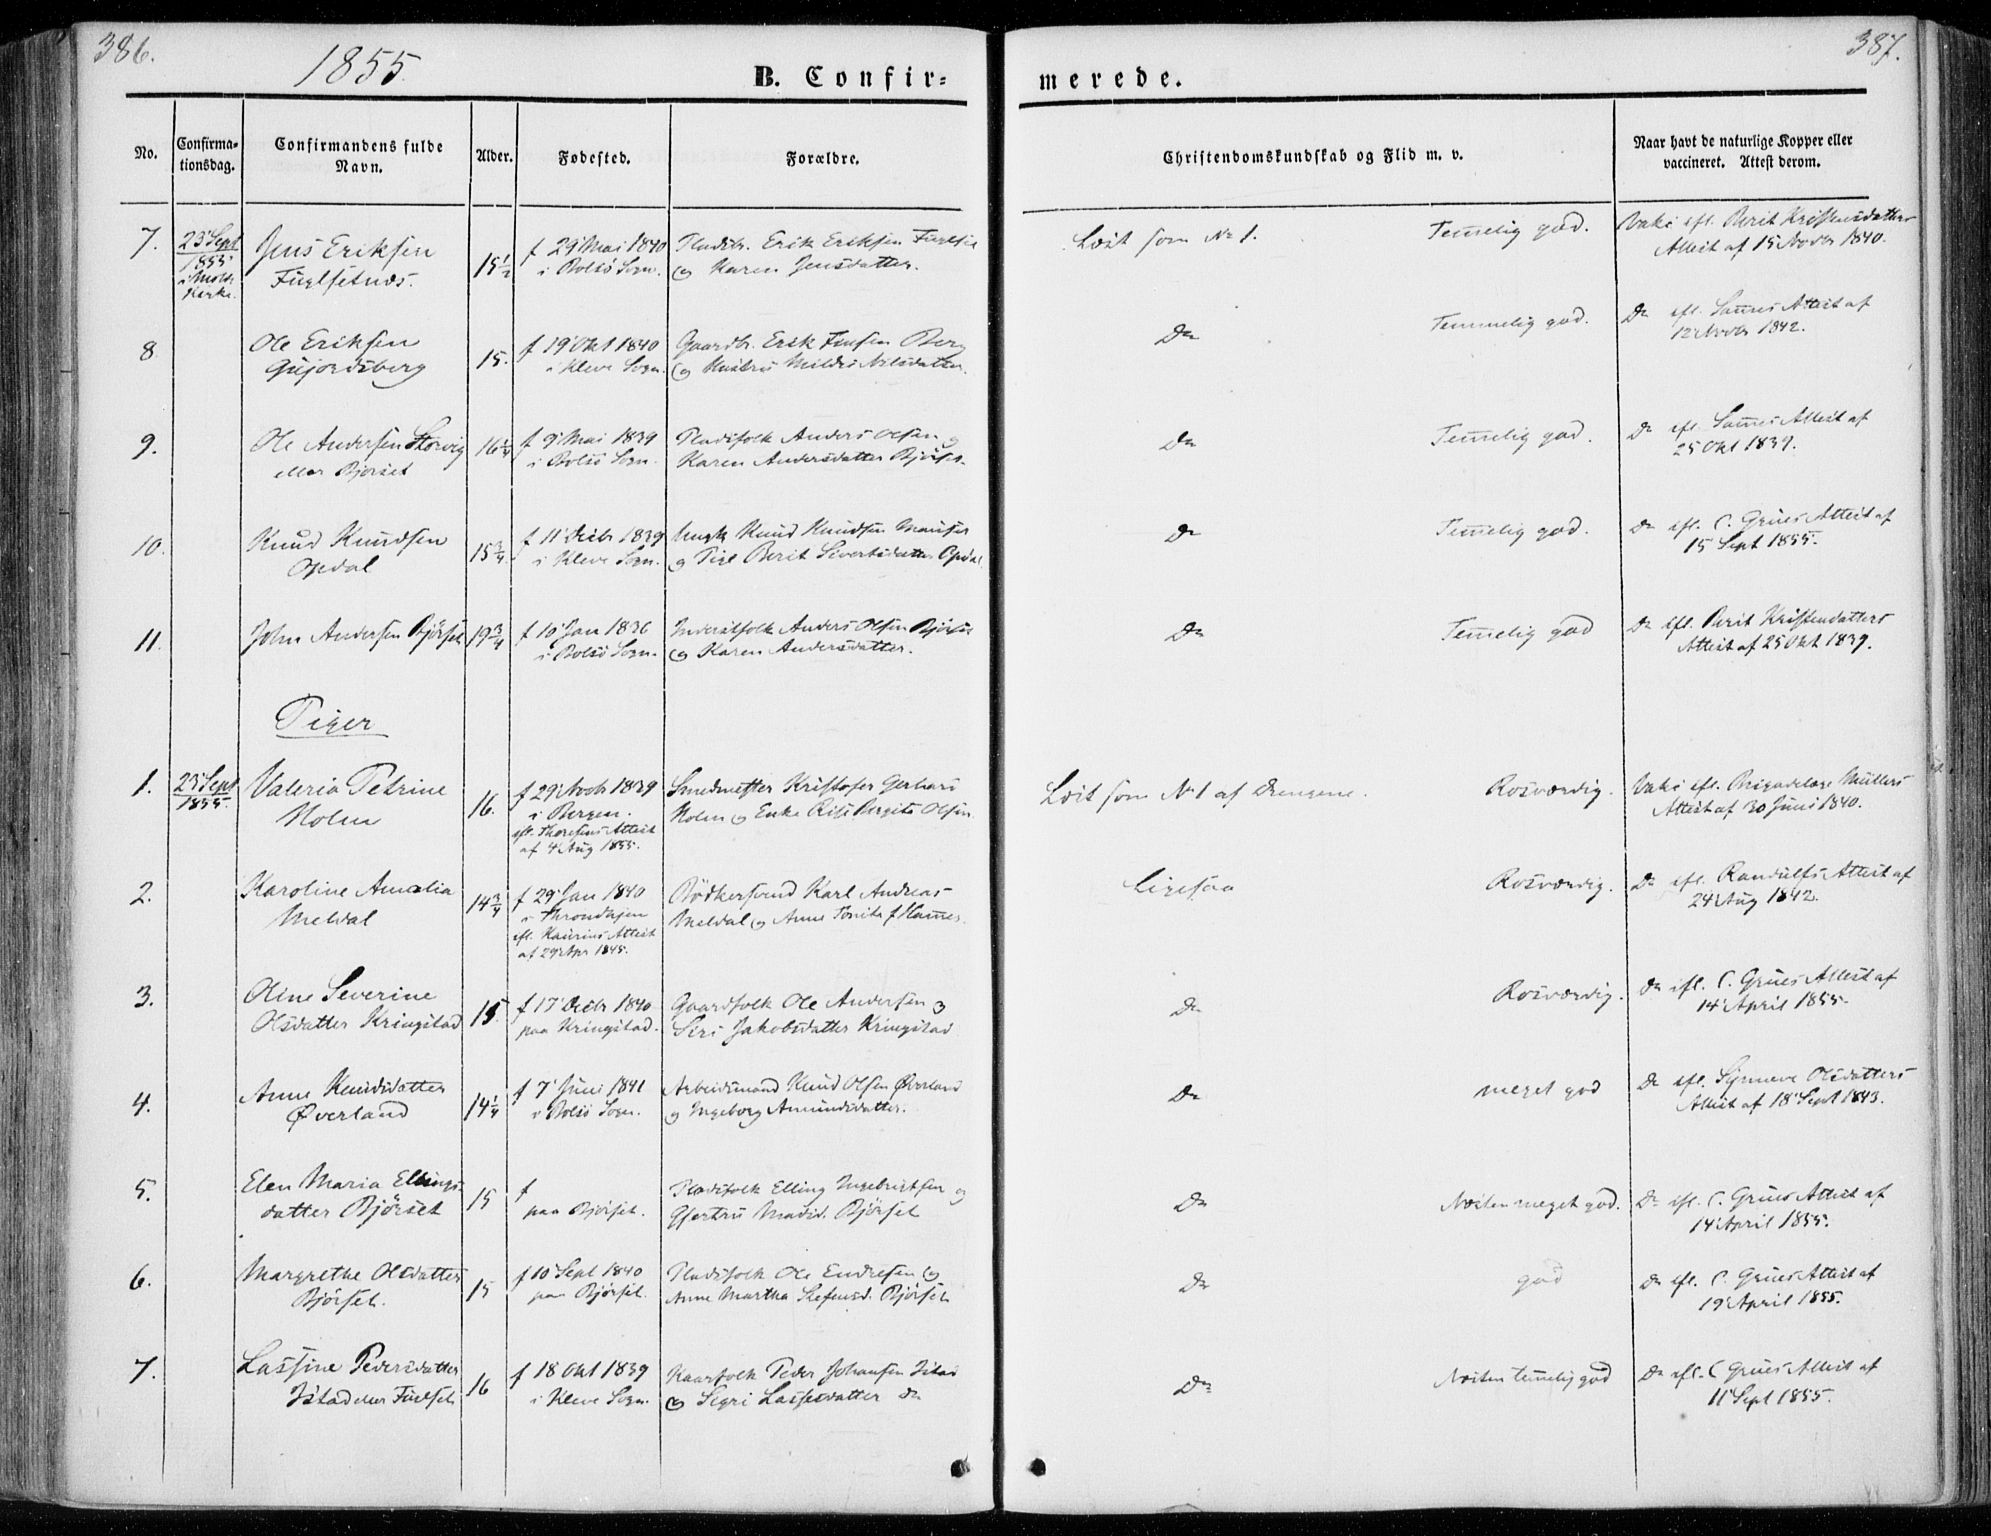 386.
1855
B. Confir=
merede.
387.
No.
Confirma=
tionsdag.
Confirmandens fulde
Navn.
Alder.
Fødested.
Forældre.
Christendomskundskab og Flid m. v.
Naar havt de naturlige Kopper eller
vaccineret. Attest derom.
7.
23 Sept
1855
i Molde
Kirke.
Jens Eriksen
Fuglsetnæs.
15 1/2
f 29 Mai 1840
i Bolsö Sogn.
Pladsbr. Erik Eriksen Fuglset
og Karen Jensdatter.
Læst som No 1.
Temelig god.
Vaks efl. Berit Kristensdatters
Attest af 15 Novbr 1840.
8
Ole Eriksen
Gujordsberg
15.
f 19 Okt 1840
i Kleve Sogn.
Gaardbr. Erik Jensen Berg
og Hustru Mildri Nilsdatter.
Do
Temmelig god.
Do efl. Sammes Attest af
12 Novbr 1842.
9.
Ole Andersen Storvig
eller Bjørset
16 1/4
f 9 Mai 1839
i Bolsö Sogn.
Pladsfolk Anders Olsen og
Karen Andersdatter Bjørset.
Do
Temelig god.
Do efl. Sammes Attest af
25 Okt 1839.
10.
Knud Knudsen
Opdal
15 3/4
f 11 Decbr 1839
i Kleve Sogn.
Ungk Knud Knudsen
og Pige Berit Sivertsdatter Opdal.
Do
Temelig god.
Do efl. C. Grües Attest af
15 Sept 1855.
11.
John Andersen Bjørset
19 3/4
f 10 Jan 1836
i Bolsö Sogn.
Inderstfolk Anders Olsen Bjørset
og Karen Andersdatter.
Do
Temelig god
Do efl. Berit Kristensdatters
Attest af 25 Okt 1839.
Piger
1.
23 Sept
1855.
Valeria Petrine
Holm
16.
f 29 Novbr 1839
i Bergen.
efl. Thoresens Attest
af 4 Aug 1855.
Smedmester Kristofer Gerhard
Holm og Enke Bergite Olsen
Læst som No 1 af Drengene.
Rosværdig.
Vaks efl. Brigadelæge Müllers
Attest af 30 Juni 1840.
2.
Karoline Amalia
Meldal
14 3/4
f 29 Jan 1840
i Throndhjem
efl. Kaurins Attest
af 29 Apr 1845.
Bödkersvend Karl Andreas
Meldal og Anne f Hammer.
Ligesaa
Rosværdig.
Do efl. Randulfs Attest af
24 Aug 1842.
3.
Oline Severine
Olsdatter Kringstad
15
f 17 Decbr 1840
paa Kringstad.
Gaardfolk Ole Andersen og
Siri Jakobsdatter Kringstad
Do
Rosværdig.
Do efl. C. Grües Attest af
14 April 1855.
4.
Anne Knudsdatter
Øverland
14 1/4
f 7 Juni 1841
i Bolsö Sogn.
Arbeidsmand Knud Olsen Øverland
og Ingeborg Amundsdatter.
Do
meget god
Do efl. Synneve Olsdatters
Attest af 18 Sept 1843.
5.
Elen Maria Ellings-
datter Bjørset
15
f
paa Bjørset.
Pladsfolk Elling Ingebrigtsen og
Gjertru Madsd. Bjørset
Do
Næsten meget god.
Do efl. C. Grües Attest af
14 April 1855.
6.
Margrethe Olsdatter
Bjørset.
15
f 10 Sept 1840
paa Bjørset.
Pladsfolk Ole Endresen og
Anne Martha Stefensd. Bjørset
Do
god
Do efl. C. Grües Attest af
19 April 1855.
7.
Lassine Pedersdatter
Istad eller Fuglset
16
f 18 Okt 1839
i Kleve Sogn.
Kaarfolk Peder Johansen Istad
og Sigri Lassesdatter do
Do
Næsten temelig god
Do efl. C Grües Attest af
11 Sept 1855.